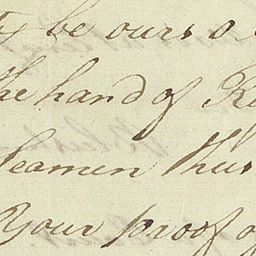 be ours o
the hand of
Seamen thus
Your proof of